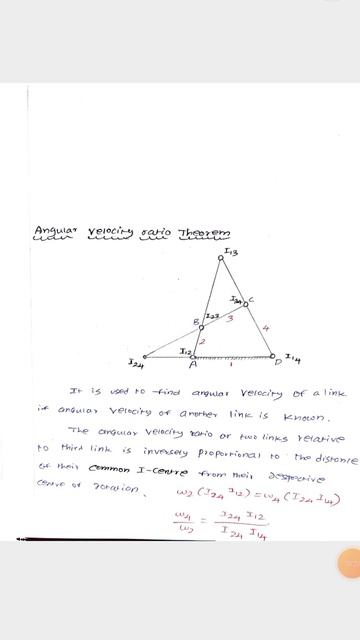 Angular Velocity ratio Theorem
I13
I34 C
B I23
3
4
2
I24
I12
I14
A
1
D
It is used to find angular velocity of a link
if angular velocity of another link is known.
The angular velocity ratio or two links relative
to third link is inversely proportional to the distance
of their common I-centre from their respective
centre of rotation.
ω2 (I24 I12) = ω4 (I24 I14)
ω4/ω2 = I24 I12 / I24 I14